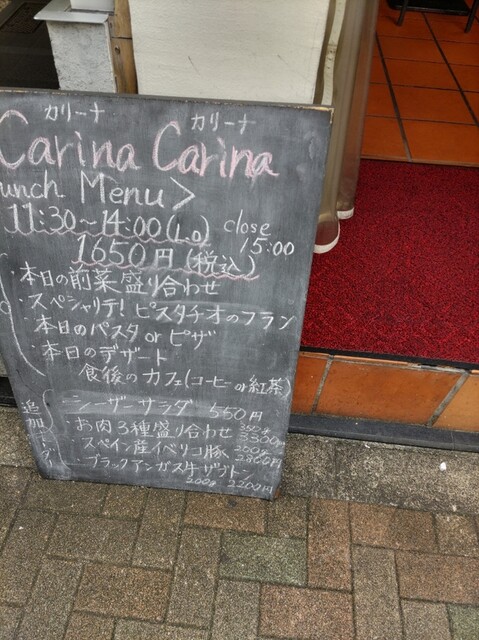 カリーナ カリーナ
Carina Carina
unch Menu>
11:30~14:00(L.O) close 15:00
1650円(税込)
・本日の前菜盛り合わせ
・スペシャリテ!ピスタチオのフラン
・本日のパスタ or ピザ
・本日のデザート
食後のカフェ(コーヒ or 紅茶)
追加オーダー
・シーザーサラダ 550円
・お肉3種盛り合わせ 3300円
・スペイン産イベリコ豚 200g 2800円
・ブラックアンガス牛ザブトン
200g 2200円